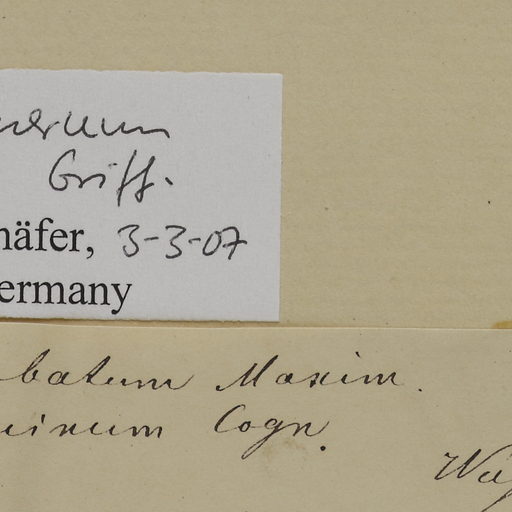 Griff.
häfer, 3-3-07
ermany
batum Maxim.
Cogn.